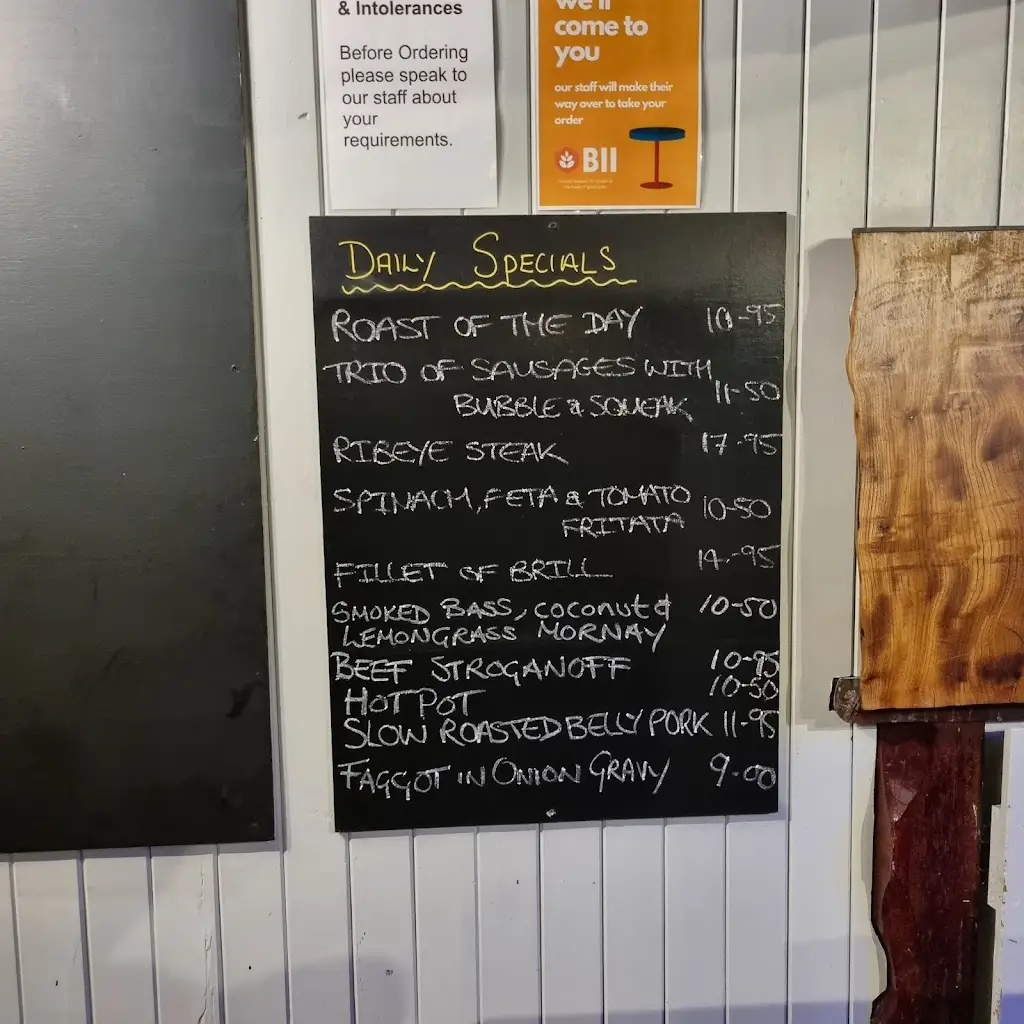 & Intolerances
Before Ordering
please speak to
our staff about
your
requirements.
we'll
come to
you
our staff will make their
way over to take your
order
BII
DAILY SPECIALS
ROAST OF THE DAY 10-95
TRIO OF SAUSAGES WITH
BUBBLE & SQUEAK 11-50
RIBEYE STEAK 17-95
SPINACH, FETA & TOMATO
FRITATA 10-50
FILLET OF BRILL 14-95
SMOKED BASS, COCONUT & 10-50
LEMONGRASS MORNAY
BEEF STROGANOFF 10-95
HOT POT 10-50
SLOW ROASTED BELLY PORK 11-95
FAGGOT IN ONION GRAVY 9-00